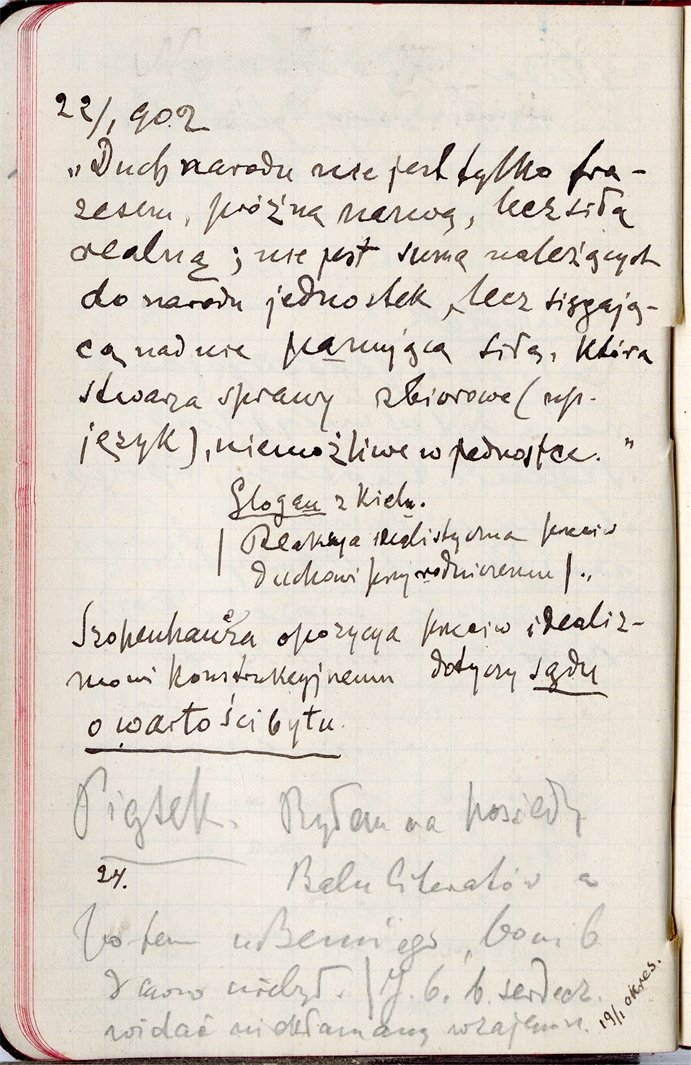 22/1 902
„Duch narodu nie jest tylko fra-
zesem, próżną nazwą, lecz siłą
realną; nie jest sumą należących
do narodu jednostek, lecz sięgają-
cą nad nie panującą siłą, która
stwarza sprawy zbiorowe (np.
język), niemożliwe w jednostce."
Glogau z Kielu.
(Reakcja idealistyczna przeciw
duchowi przyrodniczemu).,
Szopenhauera opozycya przeciw idealiz-
mowi konstrukcyjnemu dotyczy sądu
o wartości bytu.
Piątek. Byłam na posiedz
24. Balu Literatów a
potem u Benniego, bom b
dawno nie był. (J. b. b. serdecz.
widać niekłamaną wzajemn.
19/1 okres.